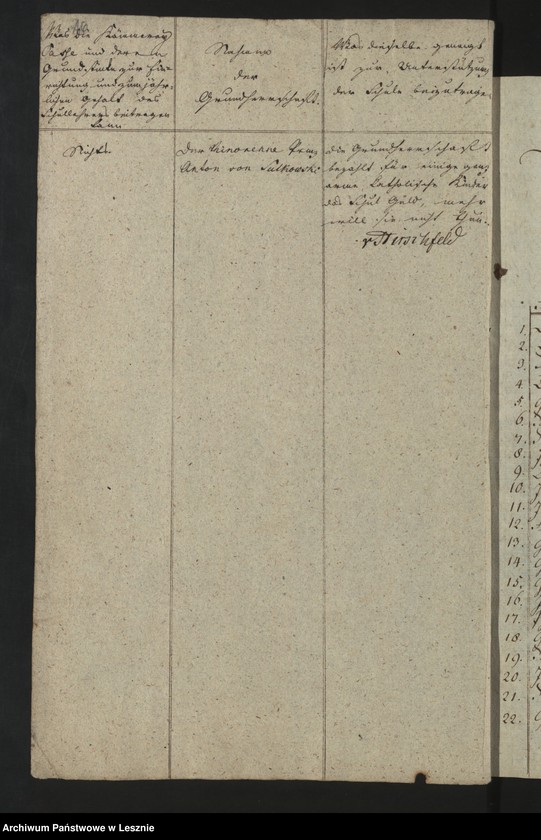 Was die Kämmerey
Casse und deren
Grundstücke zur Ein-
richtung und zum jähr-
lichen Gehalt des
Schullehrers beitragen
kann
Nahme
der
Grundherrschaft.
Was dieselbe geneigt
ist zur Unterstützung
der Schule beizutragen
Nichts
Der minorenne Prinz
Anton von Sulkowski
die Grundherrschaft
bezahlt für einige ganz
arme Catholische Kinder
das Schul Geld, mehr
will sie nicht thun.
v Hirschfeld
1.
2.
3.
4.
5.
6.
7.
8.
9.
10.
11.
12.
13.
14.
15.
16.
17.
18.
19.
20.
21.
22.
Archiwum Państwowe w Lesznie